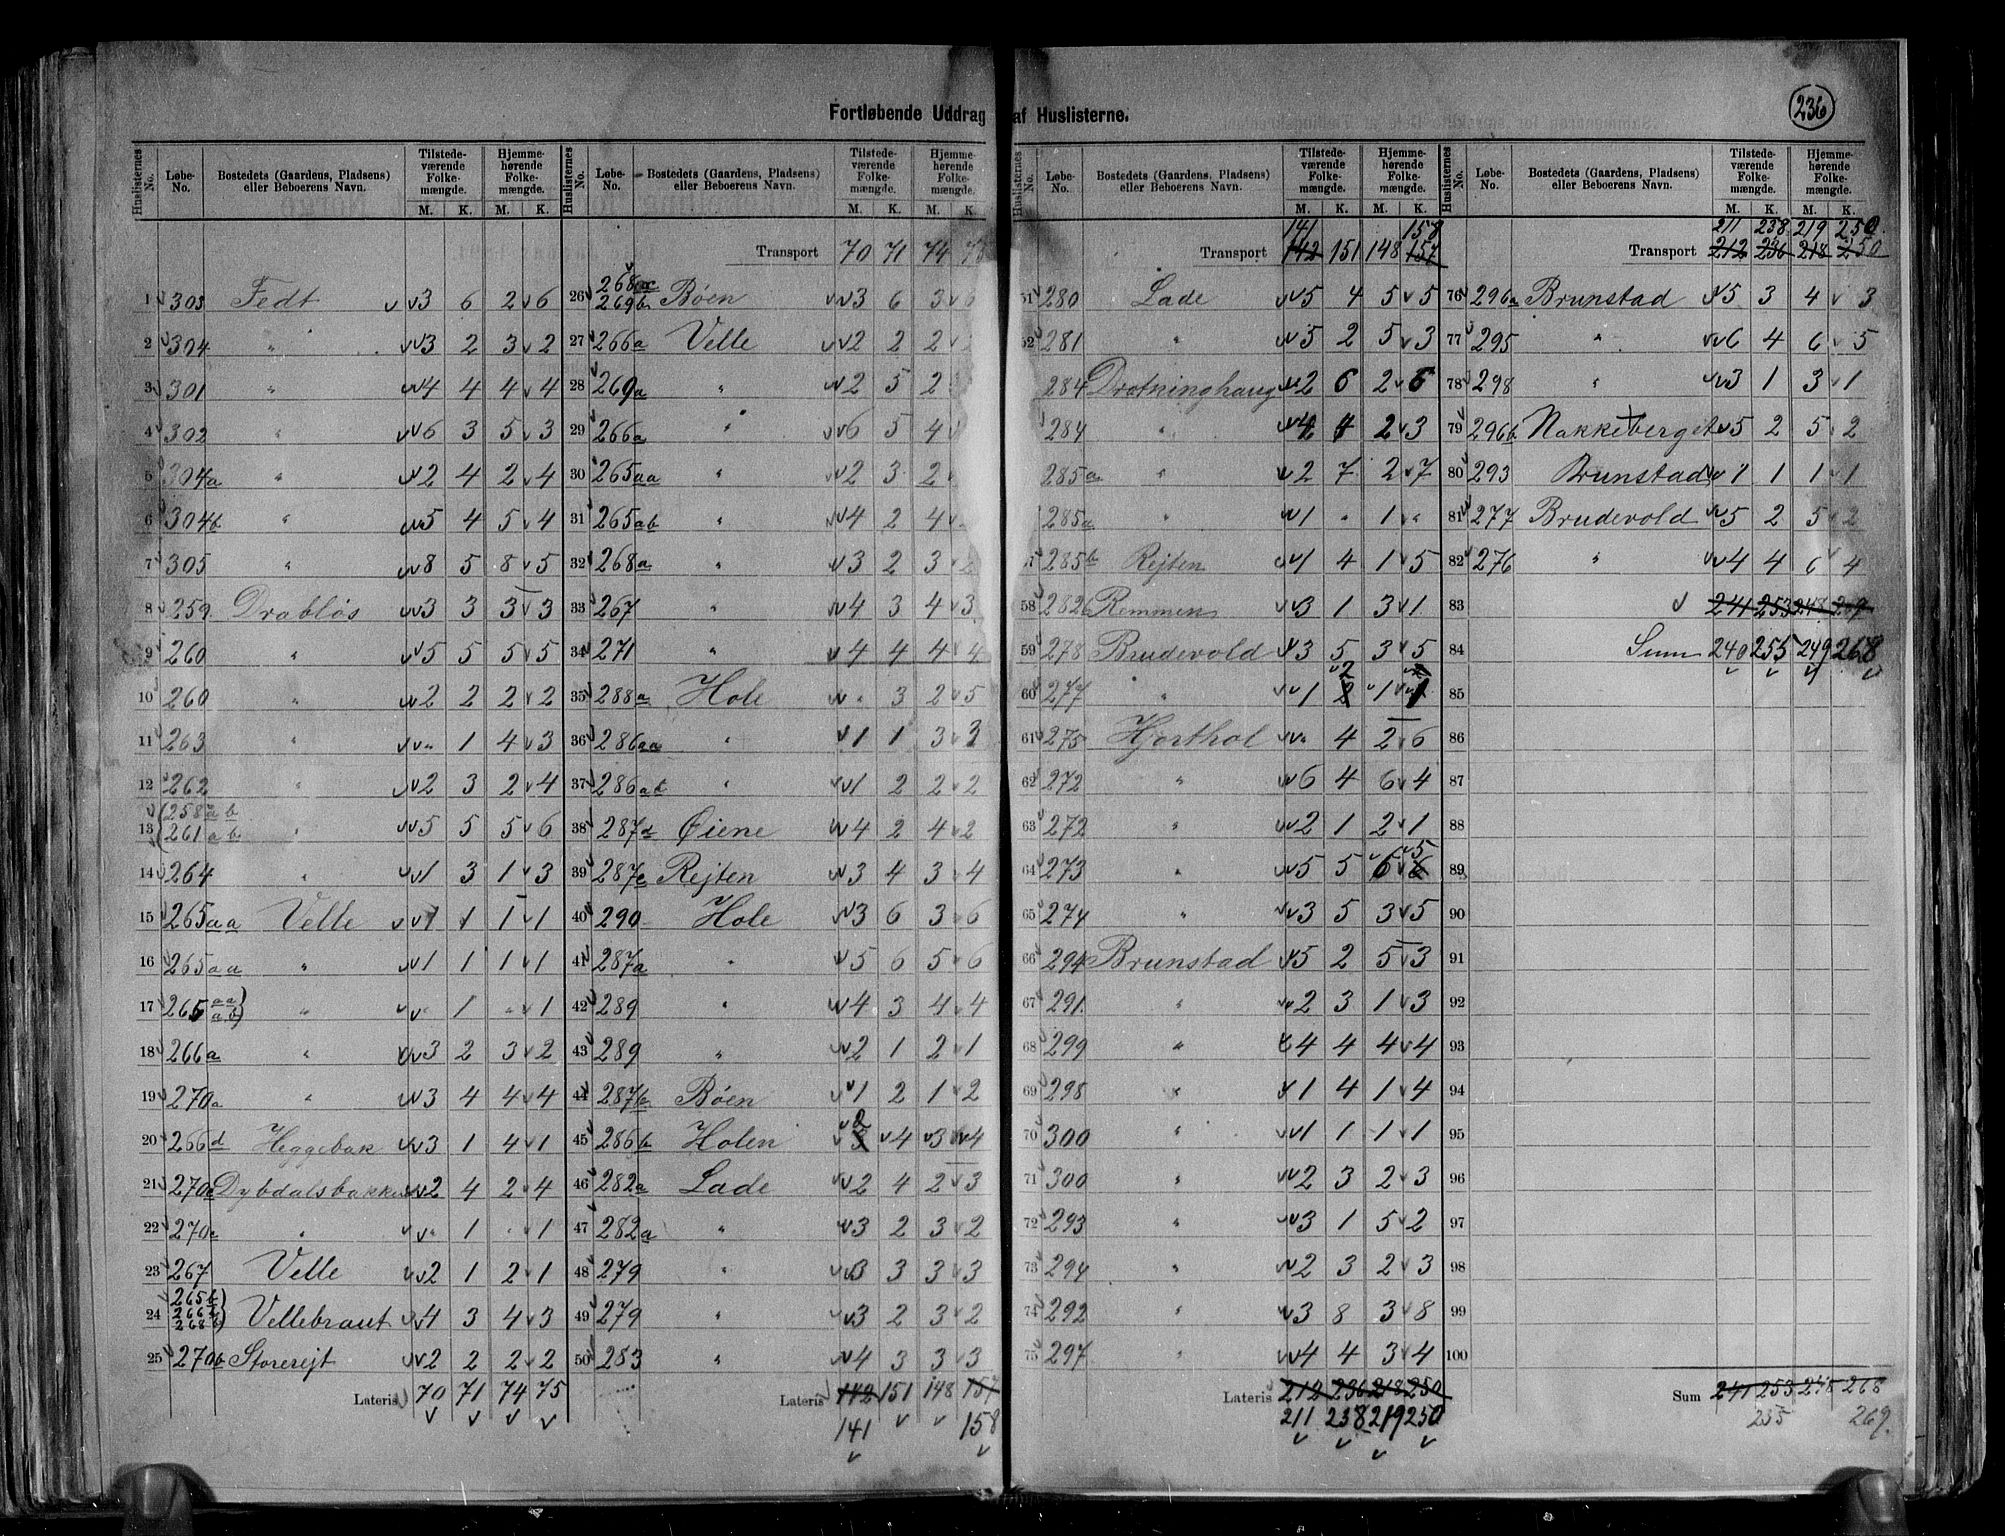 236
Fortløbende Uddrag af Huslisterne.
Huslisternes No. | Løbe-No. | Bostedets (Gaardens, Pladsens) eller Beboerens Navn. | Tilstedeværende Folkemængde. M. K. | Hjemmehørende Folkemængde. M. K.
1 303 Fedt 3 6 2 6
2 304 " 3 2 3 2
3 301 " 4 4 4 4
4 302 " 6 3 5 3
5 304a " 2 4 2 4
6 304b " 5 4 5 4
7 305 " 8 5 8 5
8 259 Drabløs 3 3 3 3
9 260 " 5 5 5 5
10 260 " 2 2 2 2
11 263 " " 1 4 3
12 262 " 2 3 2 4
13 (258 a b (261 a b " 5 5 5 6
14 264 " 1 3 1 3
15 265aa Velle 1 1 1 1
16 265aa " 1 1 1 1
17 265 aa ab) " " 1 " 1
18 266a " 3 2 3 2
19 270a " 3 4 4 4
20 266d Heggebak 3 1 4 1
21 270 Dybdalsbakke 2 4 2 4
22 270 " " 1 " 1
23 267 Velle 2 1 2 1
24 265b 268b) Vellebraut 4 3 4 3
25 270b Storerejt 2 2 2 2
Lateris 70 71 74 75
Transport 70 71 74
26 269b Bøen 3 6 3 6
27 266a Velle 2 2 2
28 269a " 2 5 2
29 266a " 6 5 4
30 265aa " 2 3 2
31 265ab " 4 2 4
32 268a " 3 2 3 2
33 267 " 4 3 4 3
34 271 " 4 4 4 4
35 288a Hole " 3 2 5
36 286aa " 1 1 3 3
37 286ab " 1 2 2 2
38 287d Øiene 4 2 4 2
39 287c Rejten 3 4 3 4
40 290 Hole 3 6 3 6
41 287a " 5 6 5 6
42 289 " 4 3 4 4
43 289 " 2 1 2 1
44 287b Bøen 1 2 1 2
45 286b Holen 2 4 3 4
46 282a Lade 2 4 2 3
47 282a " 3 2 3 2
48 279 " 3 3 3 3
49 279 " 3 2 3 2
50 283 " 4 3 3 3
Lateris 142 151 148 157
141 158
141 158
Transport 142 151 148 157
51 280 Lade 5 4 5 5
52 281 " 5 2 5 3
284 Drotninghaug 2 6 2 6
284 " 4 4 2 3
285a " 2 7 2 7
285a " 1 " 1 "
285b Rejten 1 4 1 5
58 282a Remmen 3 1 3 1
59 278 Brudevold 3 5 3 5
60 277 " 1 2 1 1
61 275 Hjorthol " 4 2 6
62 272 " 6 4 6 4
63 272 " 2 1 2 1
64 273 " 5 5 6 5
65 274 " 3 5 3 5
66 294 Brunstad 5 2 5 3
67 291 " 2 3 1 3
68 299 " 4 4 4 4
69 298 " 1 4 1 4
70 300 " 1 1 1 1
71 300 " 2 3 2 3
72 293 " 3 1 5 2
73 294 " 2 3 2 3
74 292 " 3 8 3 8
75 297 " 4 4 3 4
Lateris 212 236 218 250
211 238 219 250
211 238 219 250
Transport 212 236 218 250
76 296a Brunstad 5 3 4 3
77 295 " 6 4 6 5
78 298 " 3 1 3 1
79 296b Nakkeberget 5 2 5 2
80 293 Brunstad 1 1 1 1
81 277 Brudevold 5 2 5 2
82 276 " 4 4 6 4
83 241 253 248 269
84 Sum 240 255 249 268
85
86
87
88
89
90
91
92
93
94
95
96
97
98
99
100
Sum 241 253 248 268
255 269